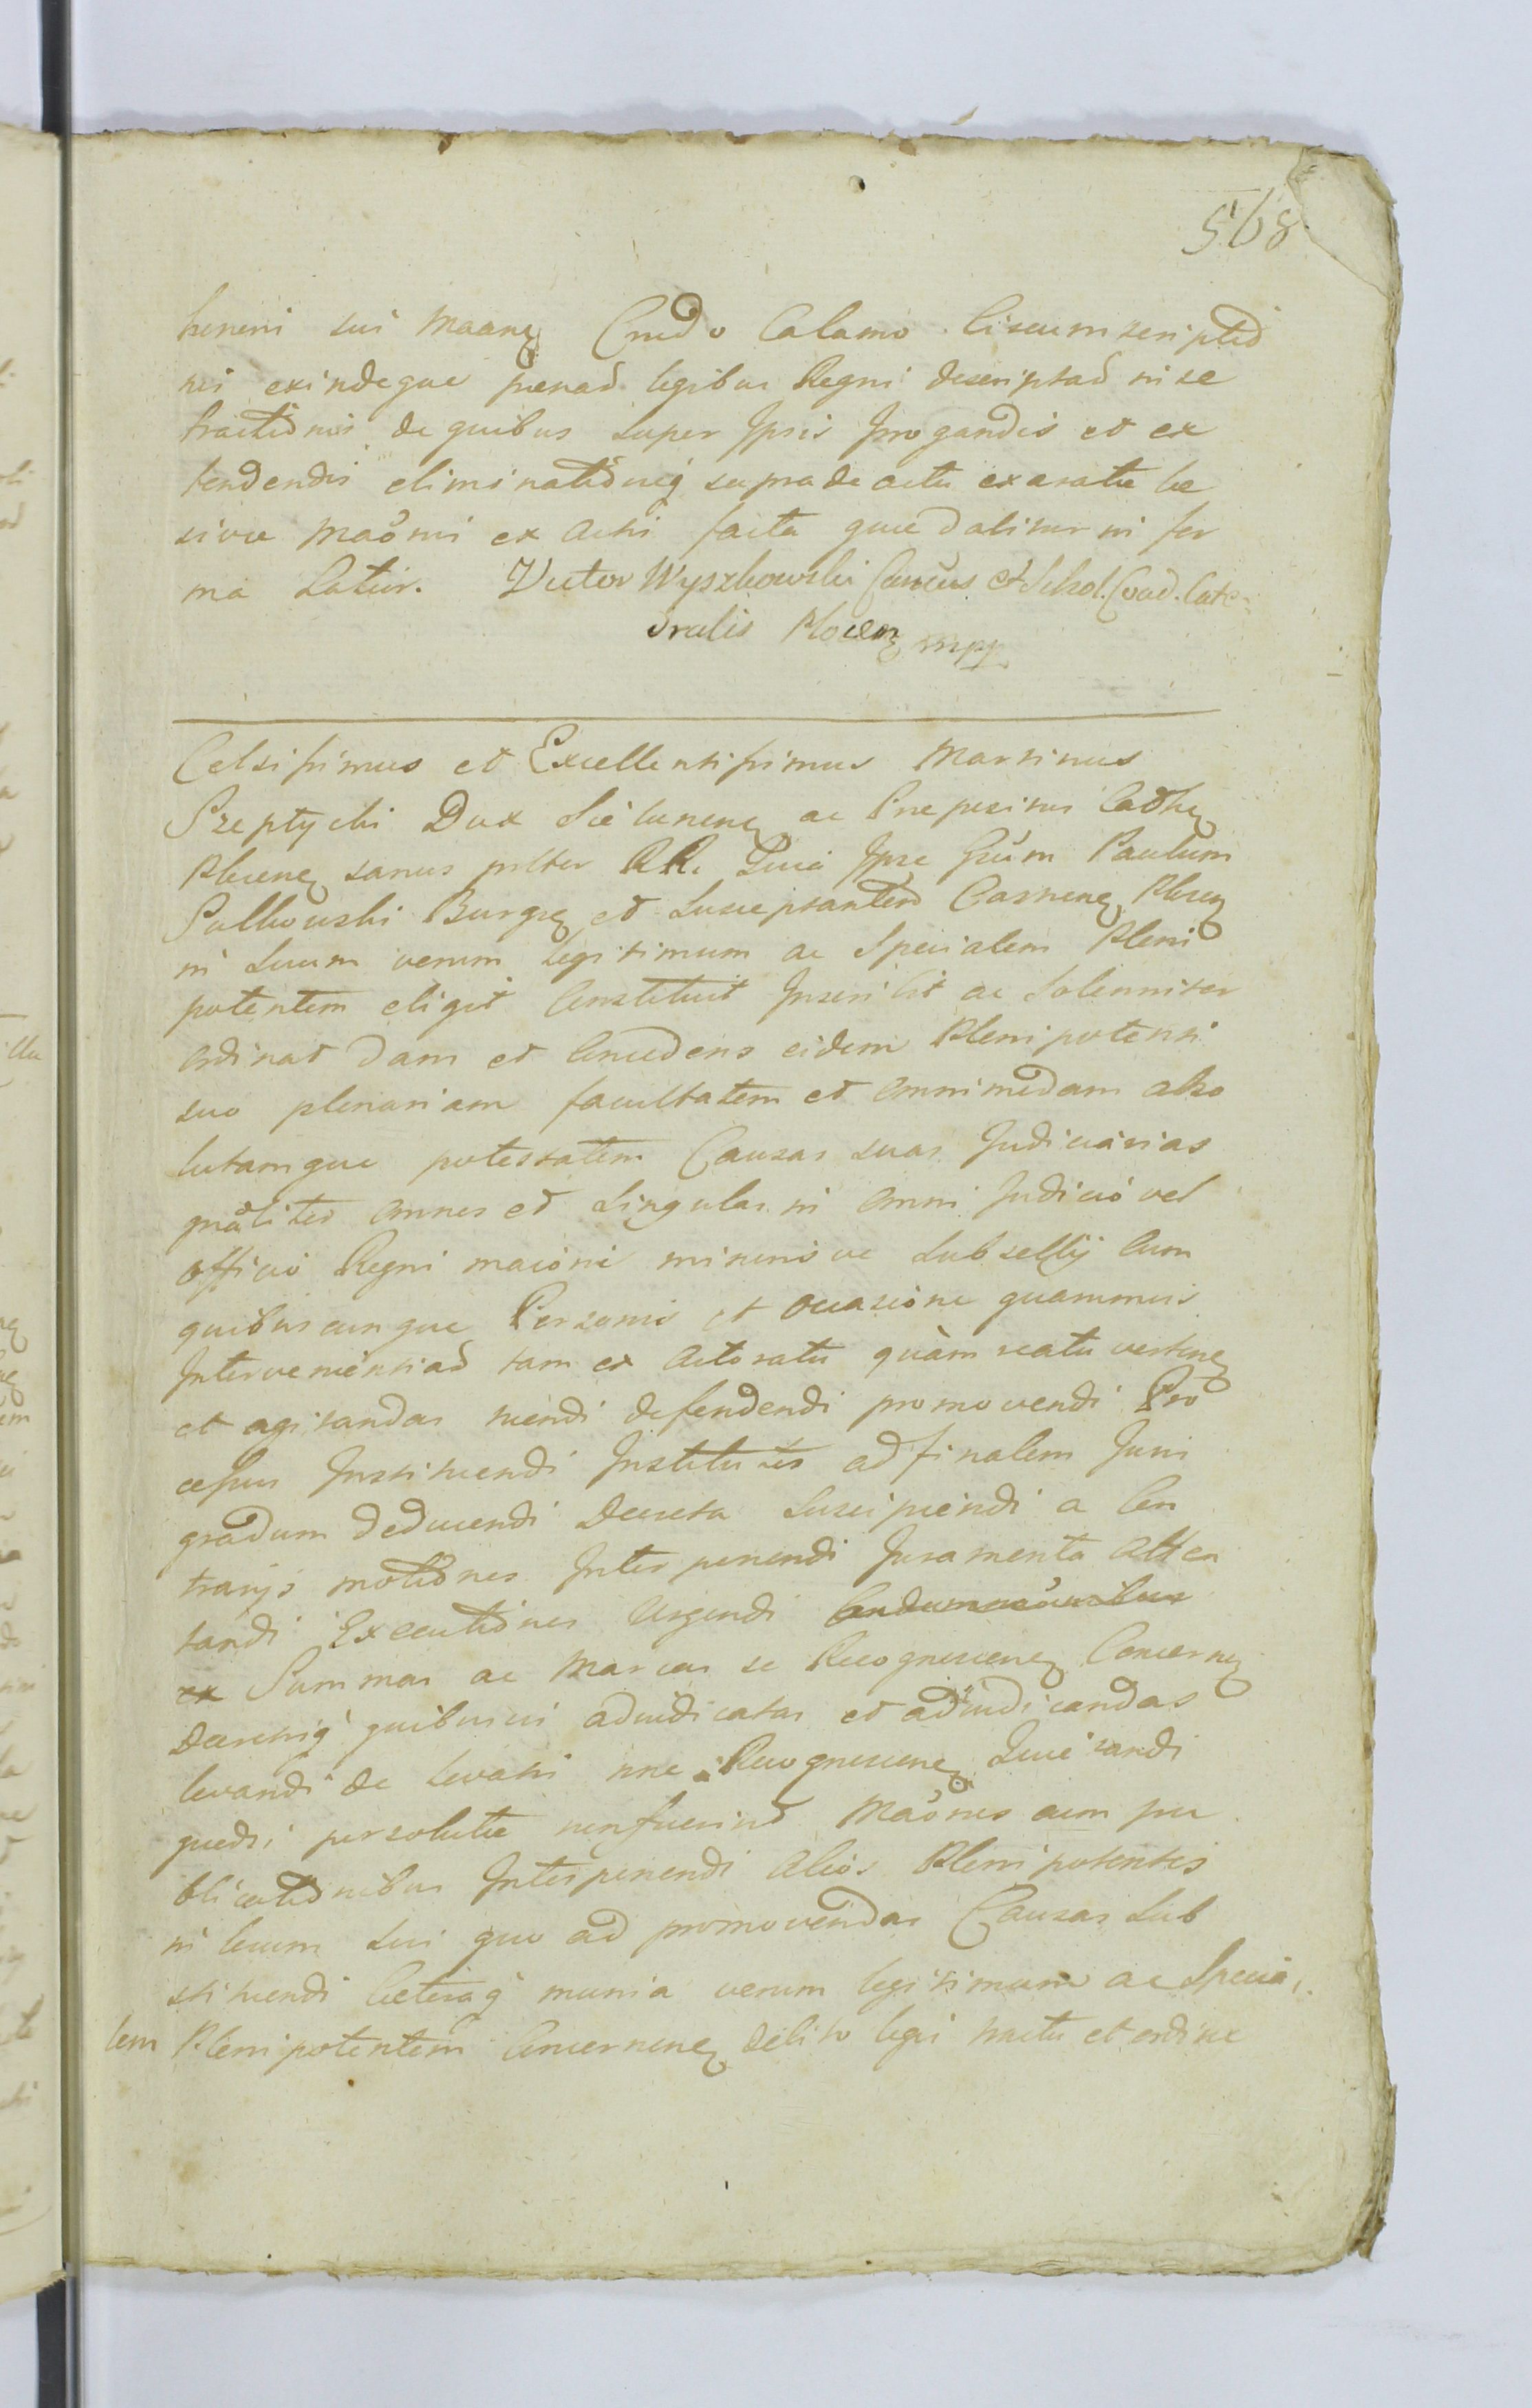 568
honeni sui Maanq Crudo Calamo Circumscriptio
nis exindeque penas legibus Regni descriptas in se
tractionis de quibus super Ipsis Irrogandis et ex
tendendis eliminationeq supra de actu exarate le
sive Maõni ex Actis facta que dabitur in for
ma Latior. Victor Wyszkowski Cancus et Schol. Coad. Cate
dralis Plocen mpp
Celsissimus et Excellentissimus Martinus
Szeptycki Dux Sielunenq ac Prepositus Cathq
Plocenq sanus pltter RR. Quia Ipse Gnũm Paulum
Sulkowski Burgq et Susceptantem Castrenq Plocq
in Suum verum legitimum ac Specialem Pleni
potentem eligit Constituit Inscribit ac Solenniter
Ordinat dans et Concedens eidem Plenipotenti
suo plenariam facultatem et omnimodam abso
lutamque potestatem Causas suas Judiciarias
gnãliter omnes et Singulas in omni Judicio vel
officio Regni maioris minorisve Subsellij Cum
quibuscunque Personis et occasione quammvis
Intervenientias tam ex Actoratu quàm reatu vertenq
et agitandas tuendi defendendi promovendi Pro
cessus Instituendi Institutis ad finalem Juris
gradum deducendi Decreta Suscipiendi a Con
trarijs motiones Interponendi Juramenta Atten
tandi Executiones Urgendi
ex Summas ac Marcas se Recognoscenq Concernq
Decretisq quibusvis adiudicatas et adiudicandas
levandi de levatis nne Recognoscenq Quietandi
quodsi persolute non fuerint Maõnes cum pu
blicationibus Interponendi Alios Plenipotentes
in locum sui quo ad promovendas Causas Sub
stituendi Ceteraq munia verum legitimum ac Specia
lem Plenipotentem Concernenq debito legis tractu et ordine